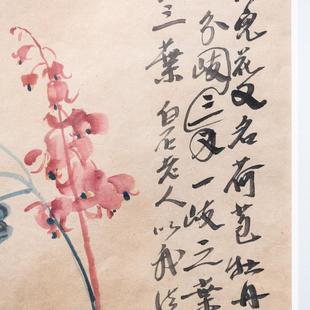 兔花又名荷苞牡丹
分岐三叉一岐之葉
三葉 白石老人以我法